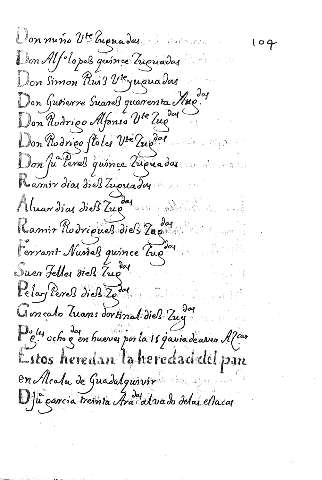 104
Don nuño Vte Zuguadas
Don Alfo lopes quince Zuguadas
Don Simon Ruis Vte yuguadas
Don Gutierre Suares quarenta Aug.das
Don Rodrigo Alfonso Vte Zugdas
Don Rodrigo floles Vte Zugdas
Don Jua Peres quince Zuguadas
Ramir dias dies Zuguadas
Aluar dias dies Zugdas
Ramir Rodrigues dies Zugdas
Ferrant Nunes quince Zugdas
Suer Telles dies Zugdas
Pelas Peres dies Zgdas
Goncalo Zuans dortinal dies Zuydas
ocho en huevar por la
Estos heredan la heredad del pan
en Alcala de Guadalquivir
D Jua garcia treinta Aradas al vado de las estacas